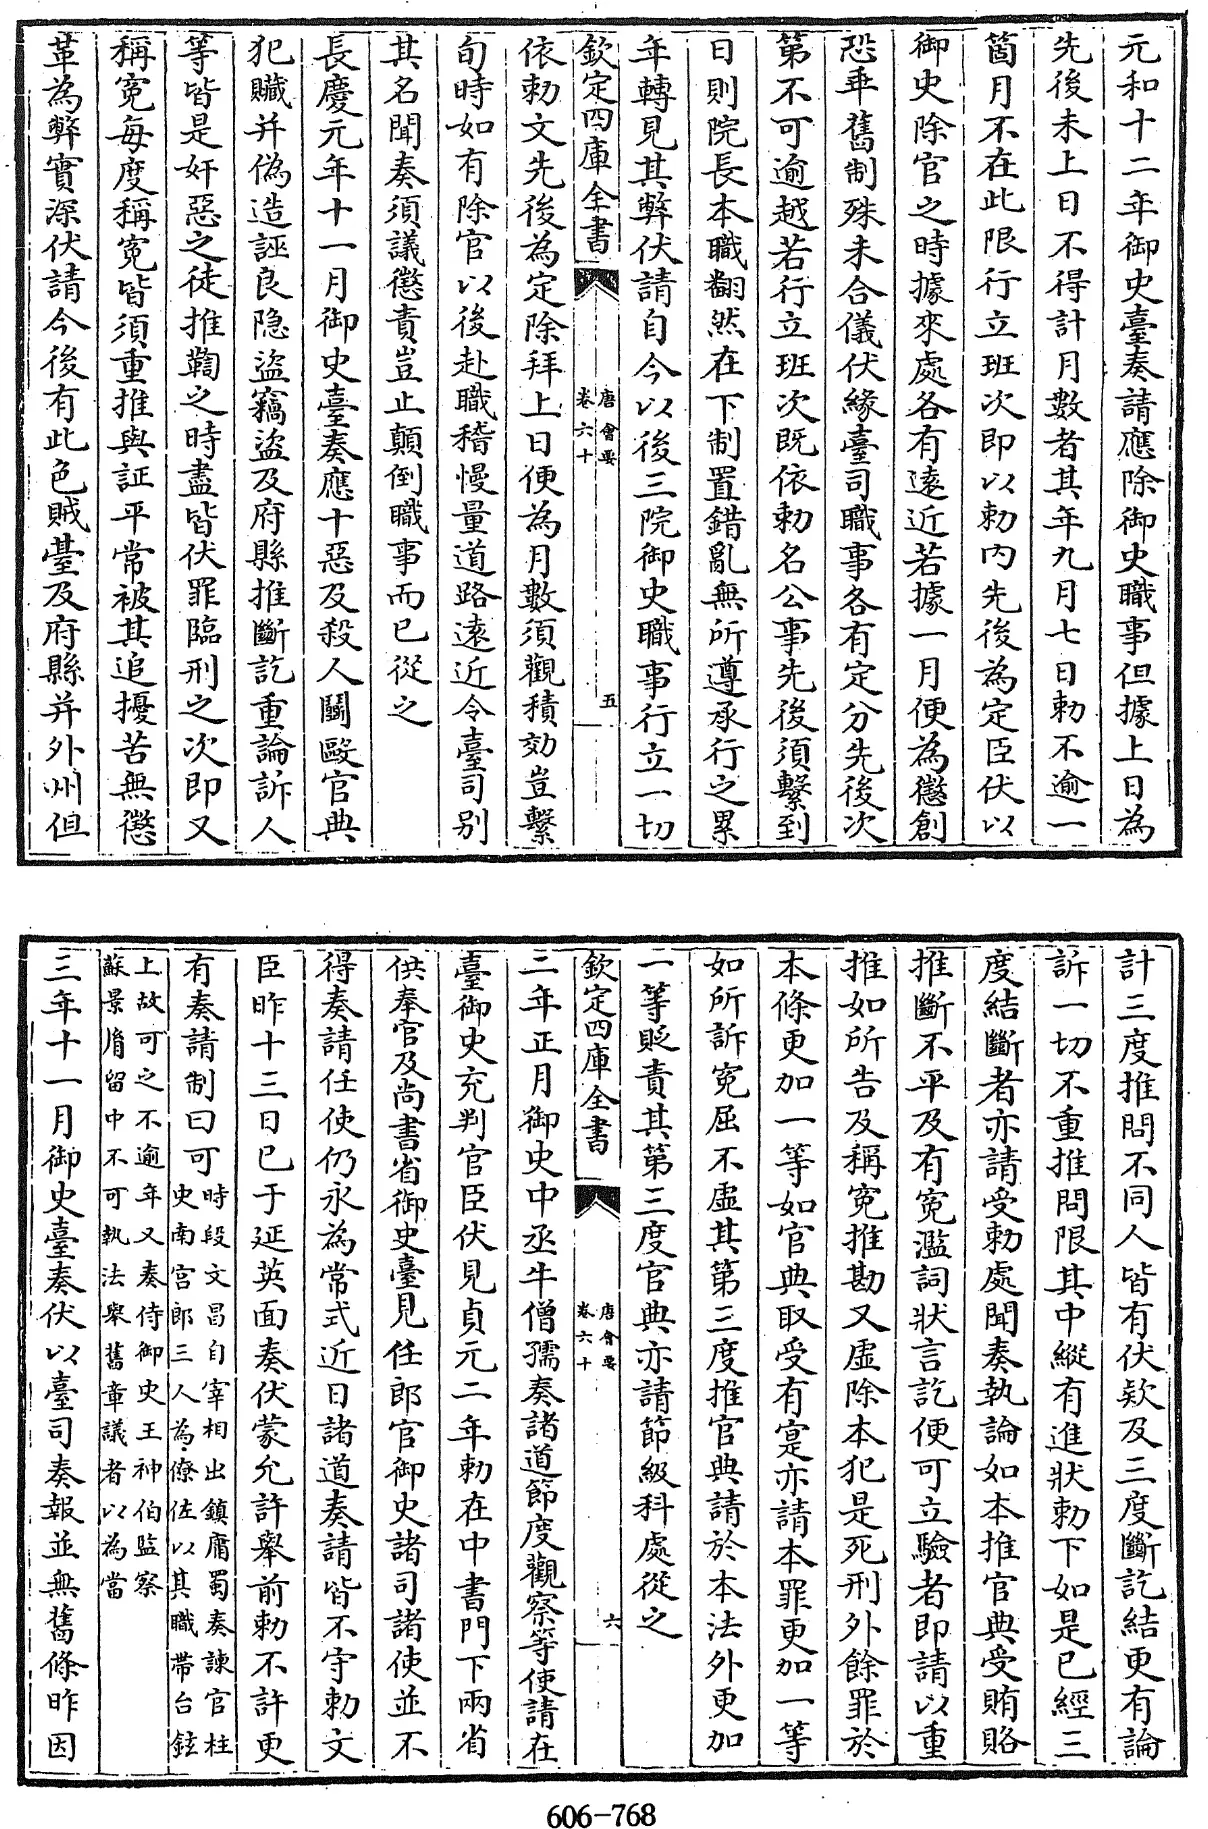 元和十二年御史臺奏請應除御史職事但據上日為
先後未上日不得計月數者其年九月七日勅不逾一
箇月不在此限行立班次即以勅内先後為定臣伏以
御史除官之時據來處各有遠近若據一月便為懲創
恐乖舊制殊未合儀伏緣臺司職事各有定分先後次
第不可逾越若行立班次既依勅名公事先後須繫到
日則院長本職翻然在下制置錯亂無所遵承行之累
年轉見其弊伏請自今以後三院御史職事行立一切
欽定四庫全書
唐會要
卷六十
五
依勅文先後為定除拜上日便為月數須觀積効豈繫
旬時如有除官以後赴職稽慢量道路遠近令臺司别
其名聞奏須議懲責豈止顛倒職事而已從之
長慶元年十一月御史臺奏應十惡及殺人鬬毆官典
犯贓并偽造誣良隐盜竊盜及府縣推斷訖重論訴人
等皆是奸惡之徒推鞫之時盡皆伏罪臨刑之次即又
稱寃每度稱寃皆須重推與証平常被其追擾苦無懲
革為弊實深伏請今後有此色賊臺及府縣并外州但
計三度推問不同人皆有伏欵及三度斷訖結更有論
訴一切不重推問限其中縱有進狀勅下如是已經三
度結斷者亦請受勅處聞奏執論如本推官典受賄賂
推斷不平及有寃濫詞狀言訖便可立驗者即請以重
推如所告及稱寃推勘又虚除本犯是死刑外餘罪於
本條更加一等如官典取受有寔亦請本罪更加一等
如所訴寃屈不虚其第三度推官典請於本法外更加
一等貶責其第三度官典亦請節級科處從之
欽定四庫全書
唐會要
卷六十
六
二年正月御史中丞牛僧孺奏諸道節度觀察等使請在
臺御史充判官臣伏見貞元二年勅在中書門下兩省
供奉官及尚書省御史臺見任郎官御史諸司諸使並不
得奏請任使仍永為常式近日諸道奏請皆不守勅文
臣昨十三日已于延英面奏伏蒙允許舉前勅不許更
有奏請制曰可時段文昌自宰相出鎮庸蜀奏諫官柱
史南宫郎三人為僚佐以其職帶台鉉
上故可之不逾年又奏侍御史王神伯監察
蘇景脩留中不可執法舉舊章議者以為當
三年十一月御史臺奏伏以臺司奏報並無舊條昨因
606-768